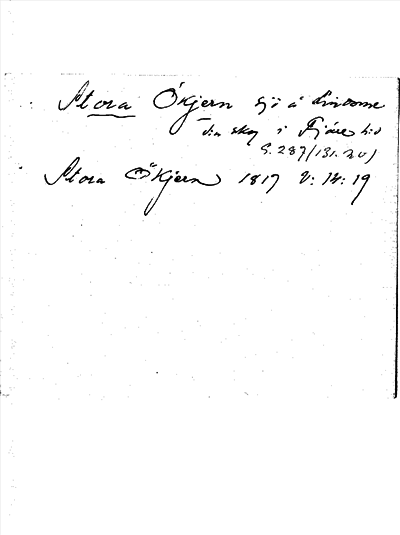 Stora Ökjern sjö å Lindome
skog i Fjäre hd
S. 287 (131. 20)
Stora Ökjern 1817 V: 14: 19